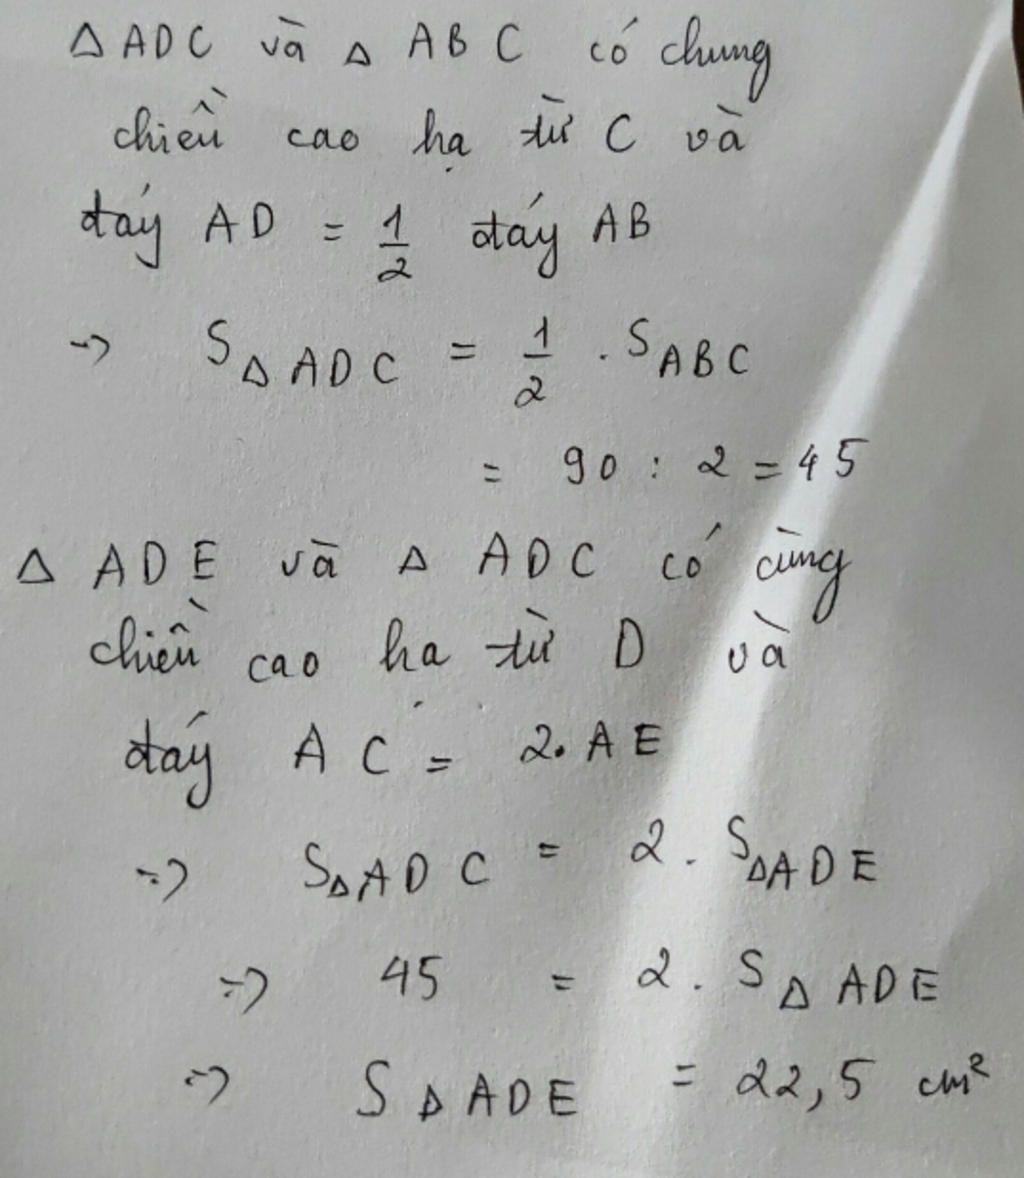 Δ ADC và Δ ABC có chung
chiều cao hạ từ C và
đáy AD = 1/2 đáy AB
=> S Δ ADC = 1/2 . S ABC
= 90 : 2 = 45
Δ ADE và Δ ADC có cùng
chiều cao hạ từ D và
đáy AC = 2.AE
=> S Δ ADC = 2 . S Δ ADE
=> 45 = 2 . S Δ ADE
=> S Δ ADE = 22,5 cm²